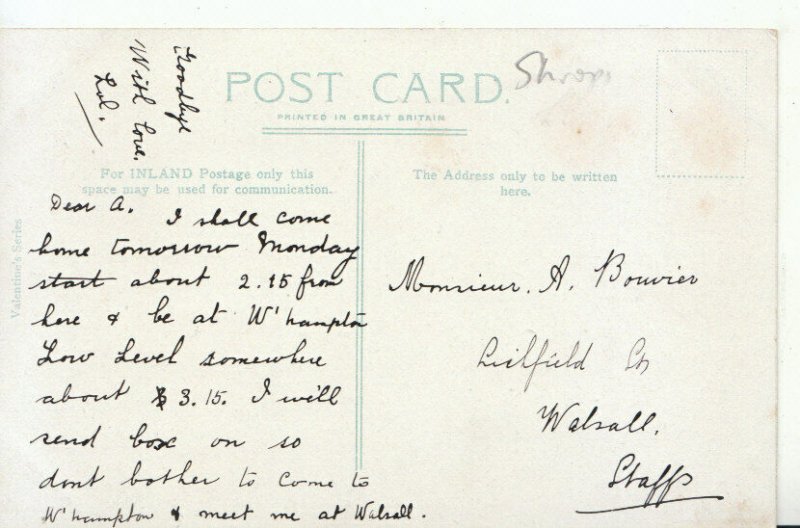 Goodbye
With love.
Lol.
POST CARD.
Shrops
PRINTED IN GREAT BRITAIN
For INLAND Postage only this
space may be used for communication.
The Address only to be written
here.
Valentine's Series
Dear A. I shall come
home tomorrow Monday
start about 2.15 from
here & be at W'hampton
Low Level somewhere
about 3.15. I will
send box on so
dont bother to come to
W'hampton & meet me at Walsall.
Monsieur. A. Bouvier
Lichfield St
Walsall.
Staffs